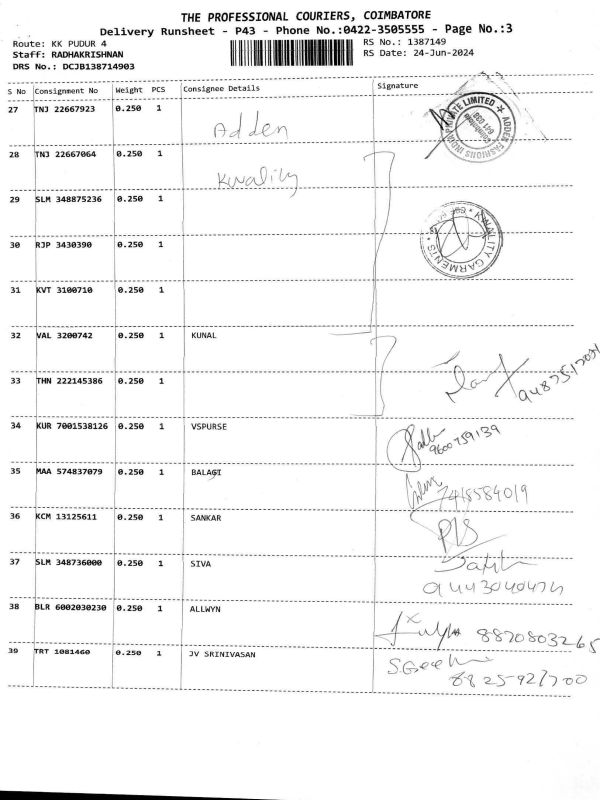 THE PROFESSIONAL COURIERS, COIMBATORE
Delivery Runsheet - P43 - Phone No.:0422-3505555 - Page No.:3
Route: KK PUDUR 4
RS No.: 1387149
Staff: RADHAKRISHNAN
RS Date: 24-Jun-2024
DRS No.: DCJB138714903
S No Consignment No Weight PCS Consignee Details Signature
27 TNJ 22667923 0.250 1 Adden
PRIVATE LIMITED ★ ADDEN FASHIONS INDIA
28 TNJ 22667064 0.250 1 Kwality
29 SLM 348875236 0.250 1
KWALITY GARMENTS
30 RJP 3430390 0.250 1
31 KVT 3100710 0.250 1
32 VAL 3200742 0.250 1 KUNAL
33 THN 222145386 0.250 1
34 KUR 7001538126 0.250 1 VSPURSE
9600759139
35 MAA 574837079 0.250 1 BALAGI
7418584019
36 KCM 13125611 0.250 1 SANKAR
37 SLM 348736000 0.250 1 SIVA
9443040474
38 BLR 6002030230 0.250 1 ALLWYN
8870803265
39 TRT 1081460 0.250 1 JV SRINIVASAN